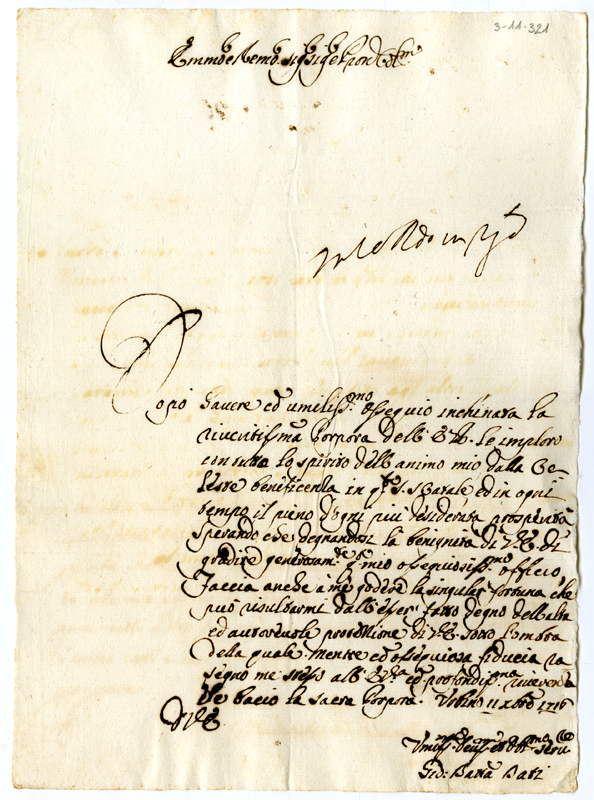 3-11-321
Emmo e Remo Sig. Sig.
Dopo havere cõ umiliss.mo ossequio inchinata la
riveritissima Porpora dell' E.V. le imploro
con tutto lo spirito dell animo mio dalla Ce-
leste beneficenza in q.to S. Natale ed in ogni
tempo il pieno d'ogni più desiderata prosperità
sperando che, degnandosi la benignità di V.E. di
gradire generosam.te q.to mio ossequiosiss.mo officio,
faccia anche à me godere la singular fortuna che
può risultarmi dall'esser fatto degno dell'alta
ed autorevole protettione di V.E. sotto l'ombra
della quale mentre cõ ossequiosa fiducia ra
segno me stesso all' E.V. cõ profondiss.ma riverenza
le bacio la sacra Porpora. Urbino 11 Xbre 1716
D.V.E.
Umiss. Devss. et Obb.mo Serv.
Gio: Batta